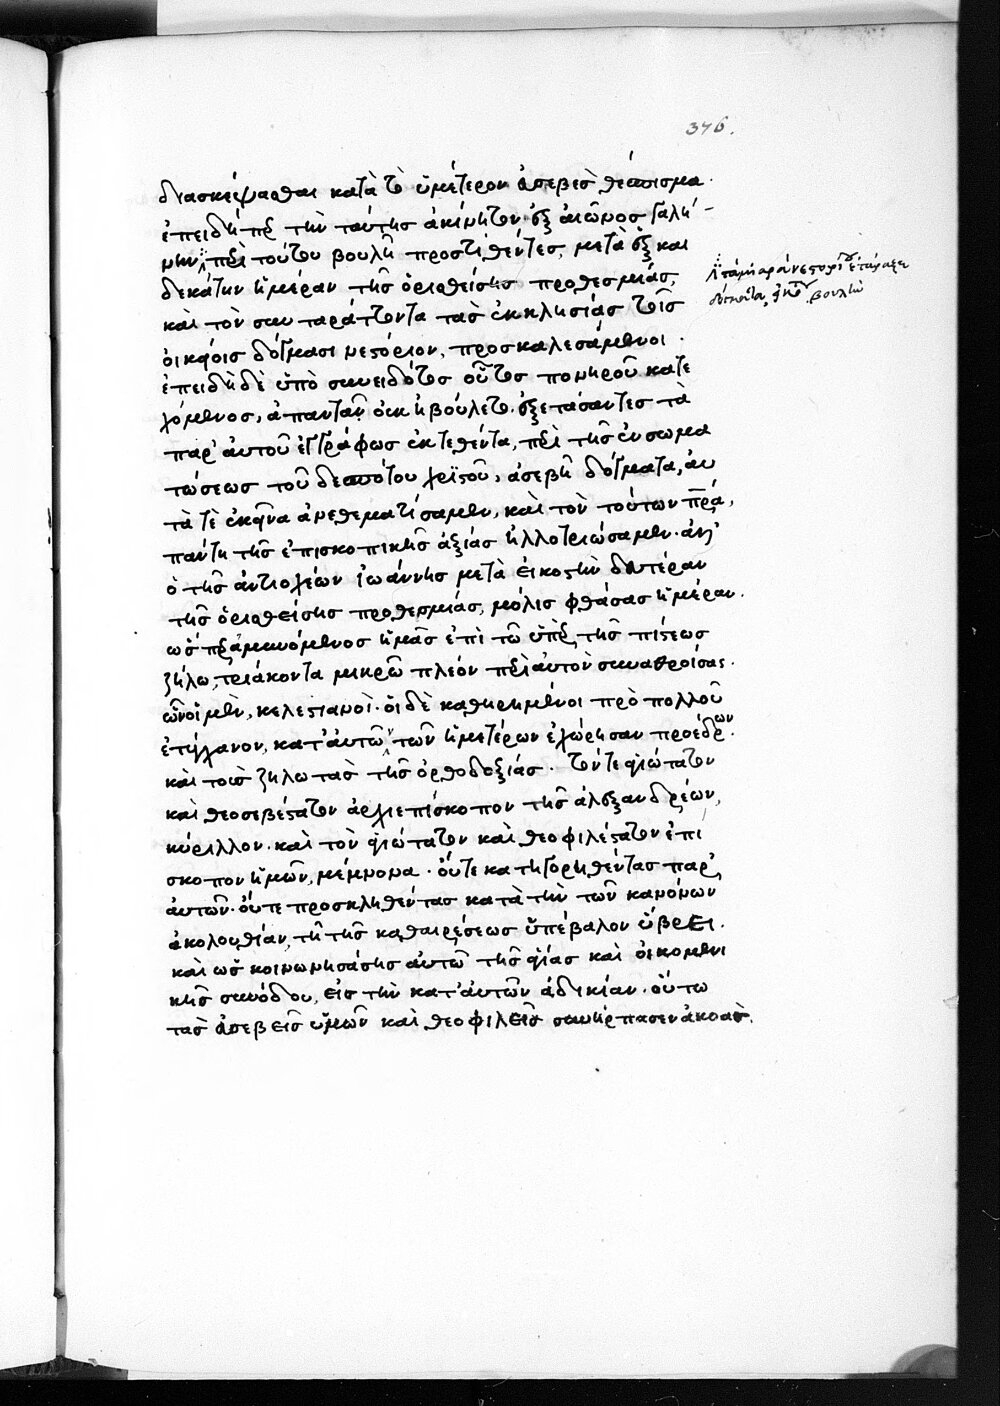 376.
διασκέψασθαι κατὰ τὸ ὑμέτερον ἀσεβὲς θέσπισμα.
ἐπειδήπερ τὴν ταύτης ἀκίνητον ἐξ αἰῶνος γαλή-
νην, περὶ τούτου βουλὴ προστιθέντες, μετὰ ἓξ και
δεκάτην ἡμέραν τῆς ὁρισθείσης προθεσμίας,
καὶ τὸν συνταράττοντα τὰς ἐκκλησίας τοῖς
οἰκείοις δόγμασι νεστόριον, προσκαλεσάμενοι.
ἐπειδὴ δὲ ὑπὸ συνειδότος οὗτος πονηροῦ κατε
χόμενος, ἀπαντᾶν οὐκ ἠβούλετο. ἐξετάσαντες τὰ
παρ' αὐτοῦ ἐγγράφως ἐκτεθέντα, περὶ τῆς ἐνσωμα
τώσεως τοῦ δεσπότου χριστοῦ, ἀσεβῆ δόγματα, αυ
τά τὲ ἐκεῖνα ἀνεθεματίσαμεν, καὶ τὸν τούτων πρα,
πάντη τῆς ἐπισκοπικῆς ἀξίας ἠλλοτριώσαμεν. ἀνθ'
ὁ τῆς ἀντιοχέων ἰωάννης μετὰ εἰκοστὴν δευτέραν
τῆς ὁρισθείσης προθεσμίας, μόλις φθάσας ἡμέραν.
ὡς περ ἀμυνόμενος ἡμᾶς ἐπὶ τῶ ὑπὲρ τῆς πίστεως
ζήλω, τριάκοντα μικρῶ πλέον περὶ αὑτὸν συναθροίσας.
ὧν οἱ μὲν, κελεστιανοὶ. οἱ δὲ καθηρημένοι πρὸ πολλοῦ
ἐτύγχανον, κατ' αὐτῶν τῶν ἡμετέρων ἐχώρησαν προέδρων.
καὶ τοὺς ζηλωτὰς τῆς ὀρθοδοξίας. τόν τε ἁγιώτατον
καὶ θεοσεβέστατον ἀρχιεπίσκοπον τῆς ἀλεξανδρέων,
κύριλλον. καὶ τὸν ἁγιώτατον καὶ θεοφιλέστατον ἐπι
σκοπον ἡμῶν, μέμνονα. οὔτε κατηγορηθέντας παρ'
αὐτῶν. οὔτε προσκληθέντας κατὰ τὴν τῶν κανόνων
ἀκολουθίαν, τῆ τῆς καθαιρέσεως ὑπέβαλον ὕβρει.
καὶ ὡς κοινωνησάσης αὐτῶ τῆς ἁγίας καὶ οἰκουμενι
κῆς συνόδου, εἰς τὴν κατ' αὐτῶν ἀδικίαν. οὕτω
τὰς ἀσεβεῖς ὑμῶν καὶ θεοφιλεῖς συνήρπασεν ἀκοάς.
τὰ μιαρὰ νεστορίου ἐτάραξε